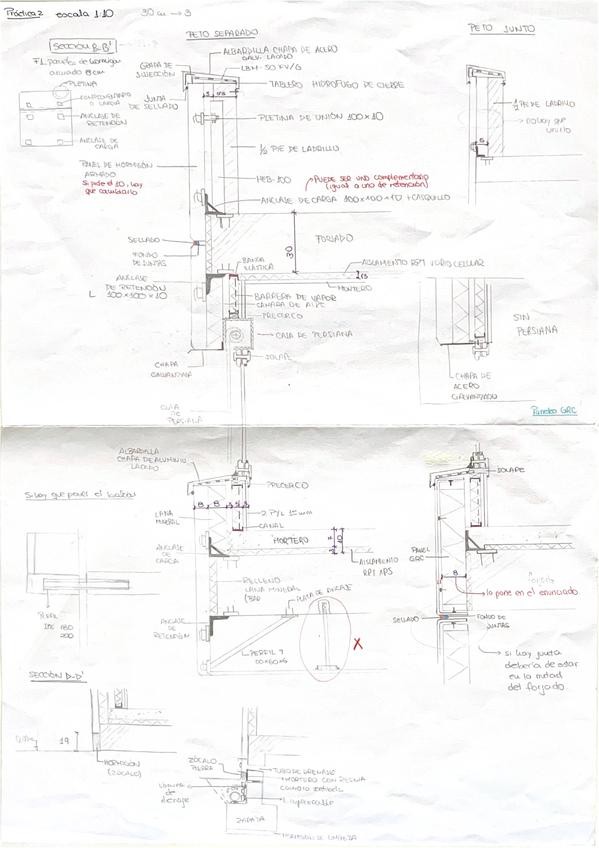 Práctica 2 escala 1:10 30 cm → 3
PETO SEPARADO
PETO JUNTO
SECCIÓN B-B'
ALBARDILLA CHAPA DE ACERO
GALV. LACADO
GRAPA DE
SUJECIÓN
TABLERO HIDRÓFUGO DE CIERRE
PLETINA
JUNTA
DE SELLADO
O CARGA
ANCLAJE DE
RETENCIÓN
ANCLAJE DE
CARGA
PLETINA DE UNIÓN 100x10
1/2 PIE DE LADRILLO
1/2 PIE DE LADRILLO
→ no hay que
unirlo
5
PANEL DE HORMIGÓN
ARMADO
Si pide el 10, hay
que cambiarlo
HEB-100
PUEDE SER UNO complementario
(igual a uno de retención)
ANCLAJE DE CARGA 100x100x10 +CASQUILLO
SELLADO
FONDO
DE JUNTAS
30
FORJADO
BANDA
ELÁSTICA
AISLAMIENTO RPT VIDRIO CELULAR
MORTERO
ANCLAJE
DE RETENCIÓN
L 100x100x10
BARRERA DE VAPOR
CÁMARA DE AIRE
PRECERCO
CAJA DE PERSIANA
SOLAPE
SIN
PERSIANA
CHAPA
GALVANIZADA
CHAPA DE
ACERO
GALVANIZADO
GUIA
DE
PERSIANA
Paneles GRC
ALBARDILLA
CHAPA DE ALUMINIO
LACADO
PRECERCO
SOLAPE
Si hay que poner el
LANA
MINERAL
8 8
2 PYL 15 mm
CANAL
MORTERO
10
ANCLAJE
DE
CARGA
AISLAMIENTO
PANEL
GRC
8
RELLENO
LANA MINERAL
PLACA DE ANCLAJE
lo pone en el enunciado
PERFIL
180
200
ANCLAJE
DE
RETENCIÓN
X
SELLADO
FONDO DE
JUNTAS
PERFIL
→ si hay junta
debería de estar
en la mitad
del forjado.
SECCIÓN D-D'
19
HORMIGÓN
(ZÓCALO)
ZÓCALO
PIEDRA
TUBO DE DRENAJE
MORTERO CON RESINA
de
drenaje
ZAPATA
HORMIGÓN DE LIMPIEZA